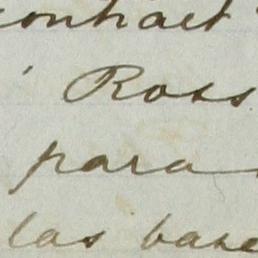 contract
Ross
para
las base